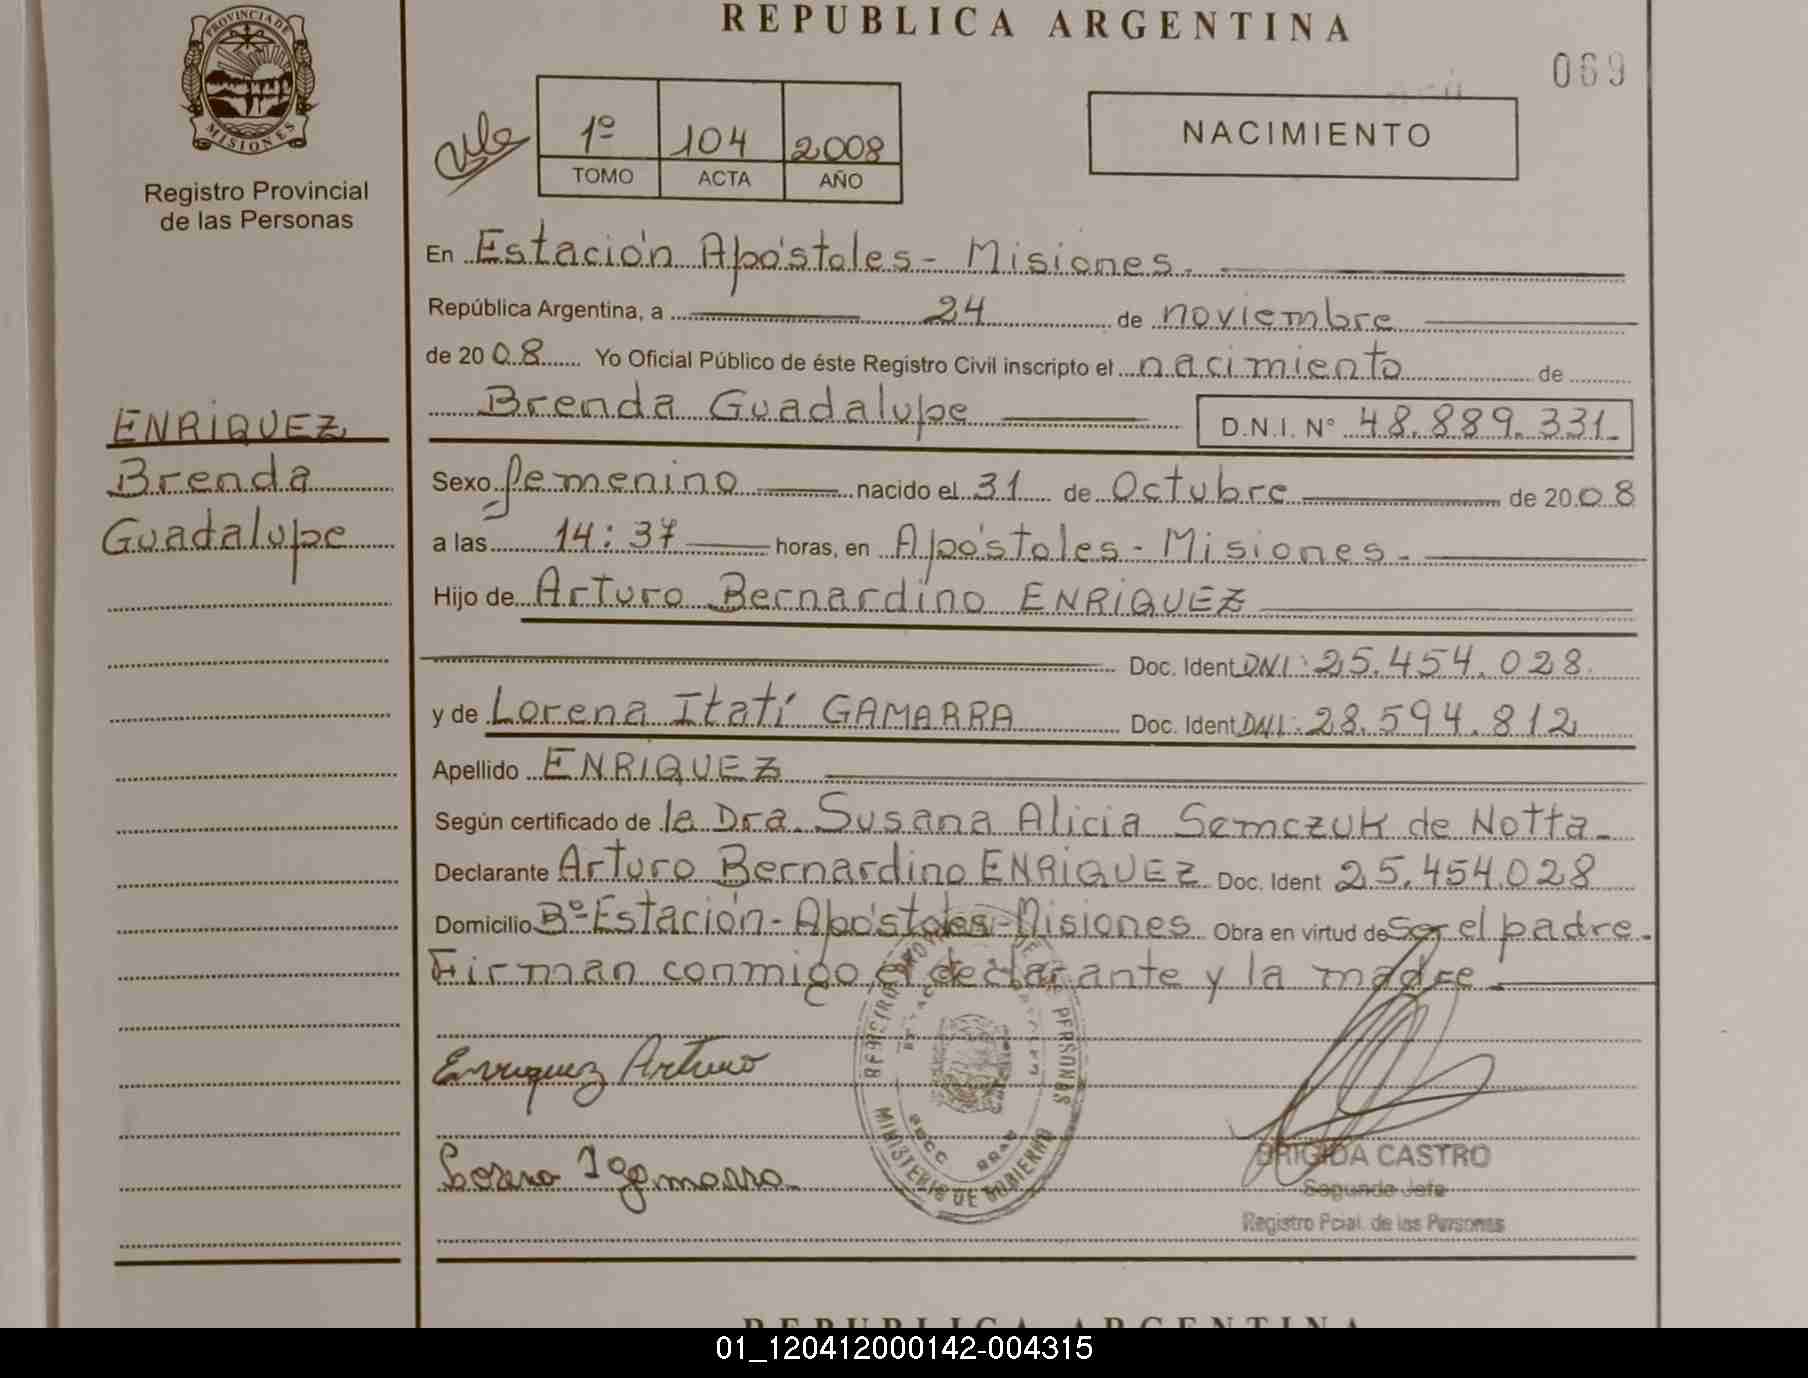 REPUBLICA ARGENTINA
069
PROVINCIA DE MISIONES
Registro Provincial
de las Personas
1º 104 2008
TOMO ACTA AÑO
NACIMIENTO
En Estación Apóstoles - Misiones.
República Argentina, a 24 de noviembre
de 2008 Yo Oficial Público de éste Registro Civil inscripto el nacimiento de
Brenda Guadalupe D.N.I. Nº 48.889.331.
ENRIQUEZ
Brenda
Guadalupe
Sexo femenino nacido el 31 de Octubre de 2008
a las 14:37 horas, en Apóstoles - Misiones.
Hijo de Arturo Bernardino ENRIQUEZ
Doc. Ident DNI: 25.454.028.
y de Lorena Itatí GAMARRA Doc. Ident DNI: 28.594.812
Apellido ENRIQUEZ
Según certificado de la Dra. Susana Alicia Semczuk de Notta.
Declarante Arturo Bernardino ENRIQUEZ Doc. Ident 25.454.028
Domicilio Bº Estación - Apóstoles - Misiones Obra en virtud de ser el padre.
Firman conmigo el declarante y la madre.
Enriquez Arturo
REGISTRO PROV. DE LAS PERSONAS
MINISTERIO DE GOBIERNO
BRIGIDA CASTRO
Segundo Jefe
Registro Pcial. de las Personas
REPUBLICA ARGENTINA
01_120412000142-004315